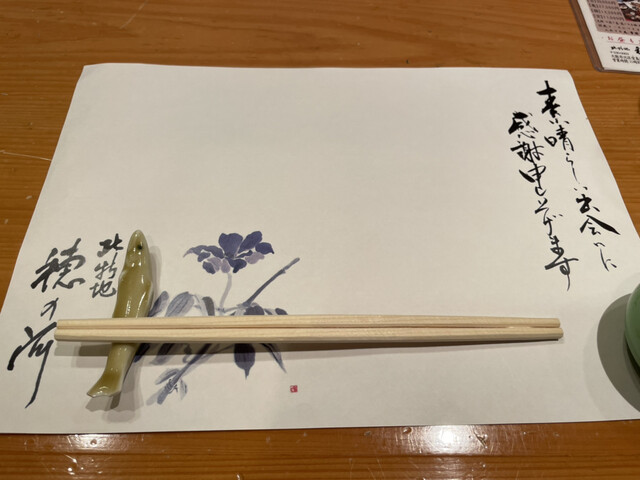 素晴らしい出会いに
感謝申し上げます
北新地
穂の河